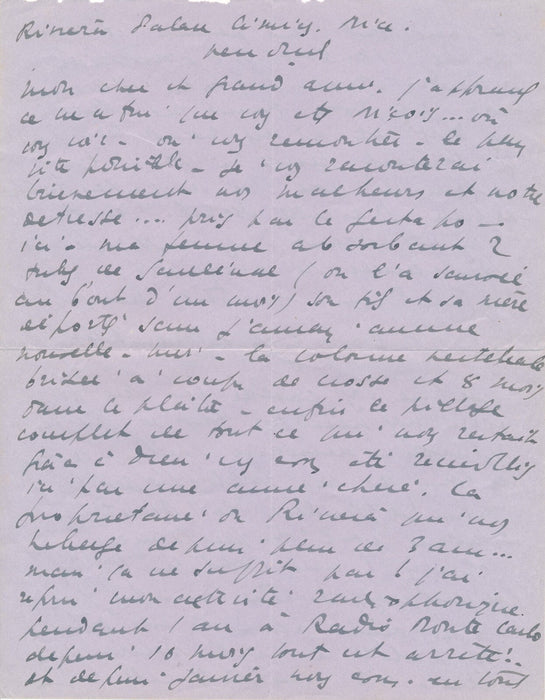 Riviera Palace Cimiez. Nice.
vendredi
mon cher et grand ami. j'apprends
ce matin que vous êtes Niçois... où
vous voir - où vous rencontrer - le plus
vite possible - je vous raconterai
brièvement nos malheurs et notre
détresse.... pris par la Gestapo -
ici - ma femme absorbant 2
tubes de (on l'a sauvée
au bout d'un mois) son fils et sa mère
déportés sans jamais aucune
nouvelle - moi - la colonne vertébrale
brisée à coups de crosse et 8 mois
dans le plâtre - enfin le pillage
complet de tout ce qui nous restait
grâce à Dieu nous avons été recueillis
ici par une amie chère. La
propriétaire du Riviera qui nous
héberge depuis peu de 3 ans...
mais ça ne suffit pas ! j'ai
repris mon activité radiophonique
pendant 1 an à Radio Monte Carlo
depuis 10 mois tout est arrêté..
et depuis Janvier nous avons en tout